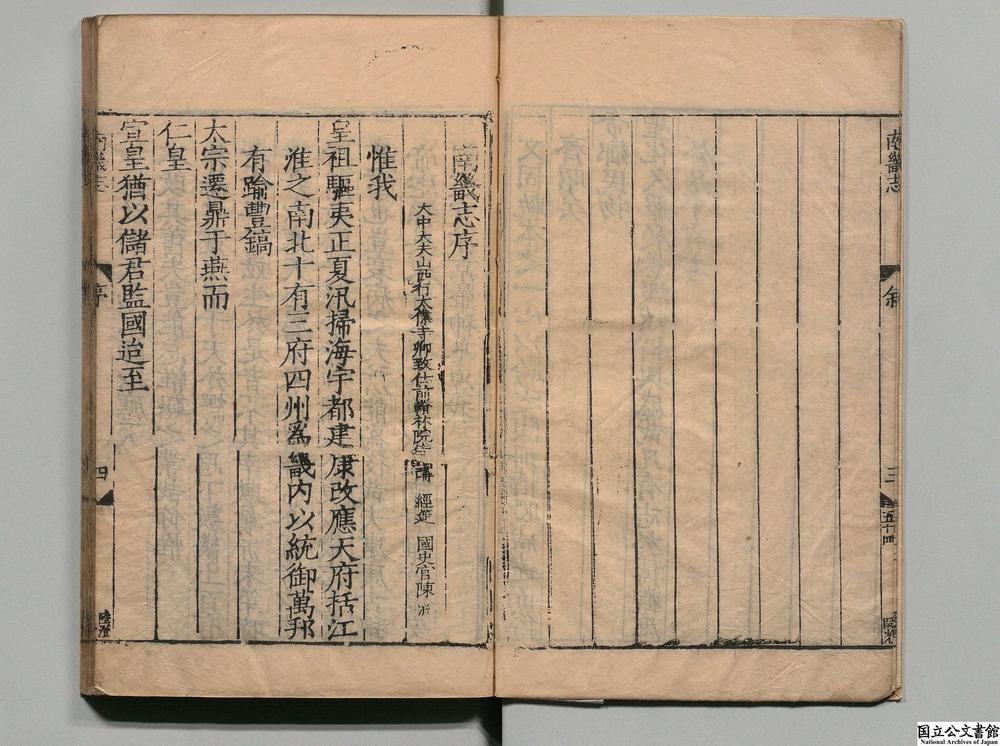 南畿志
叙
三
五十四
南畿志序
大中大夫山西行太僕寺卿致仕前翰林院侍講 經筵 國史官陳沂
惟我
皇祖驅夷正夏汛掃海宇都建康改應天府括江
淮之南北十有三府四州爲畿內以統御萬邦
有踰豐鎬
太宗遷鼎于燕而
仁皇
宣皇猶以儲君監國迨至
南畿志
序
四
陸澄
国立公文書館
National Archives of Japan